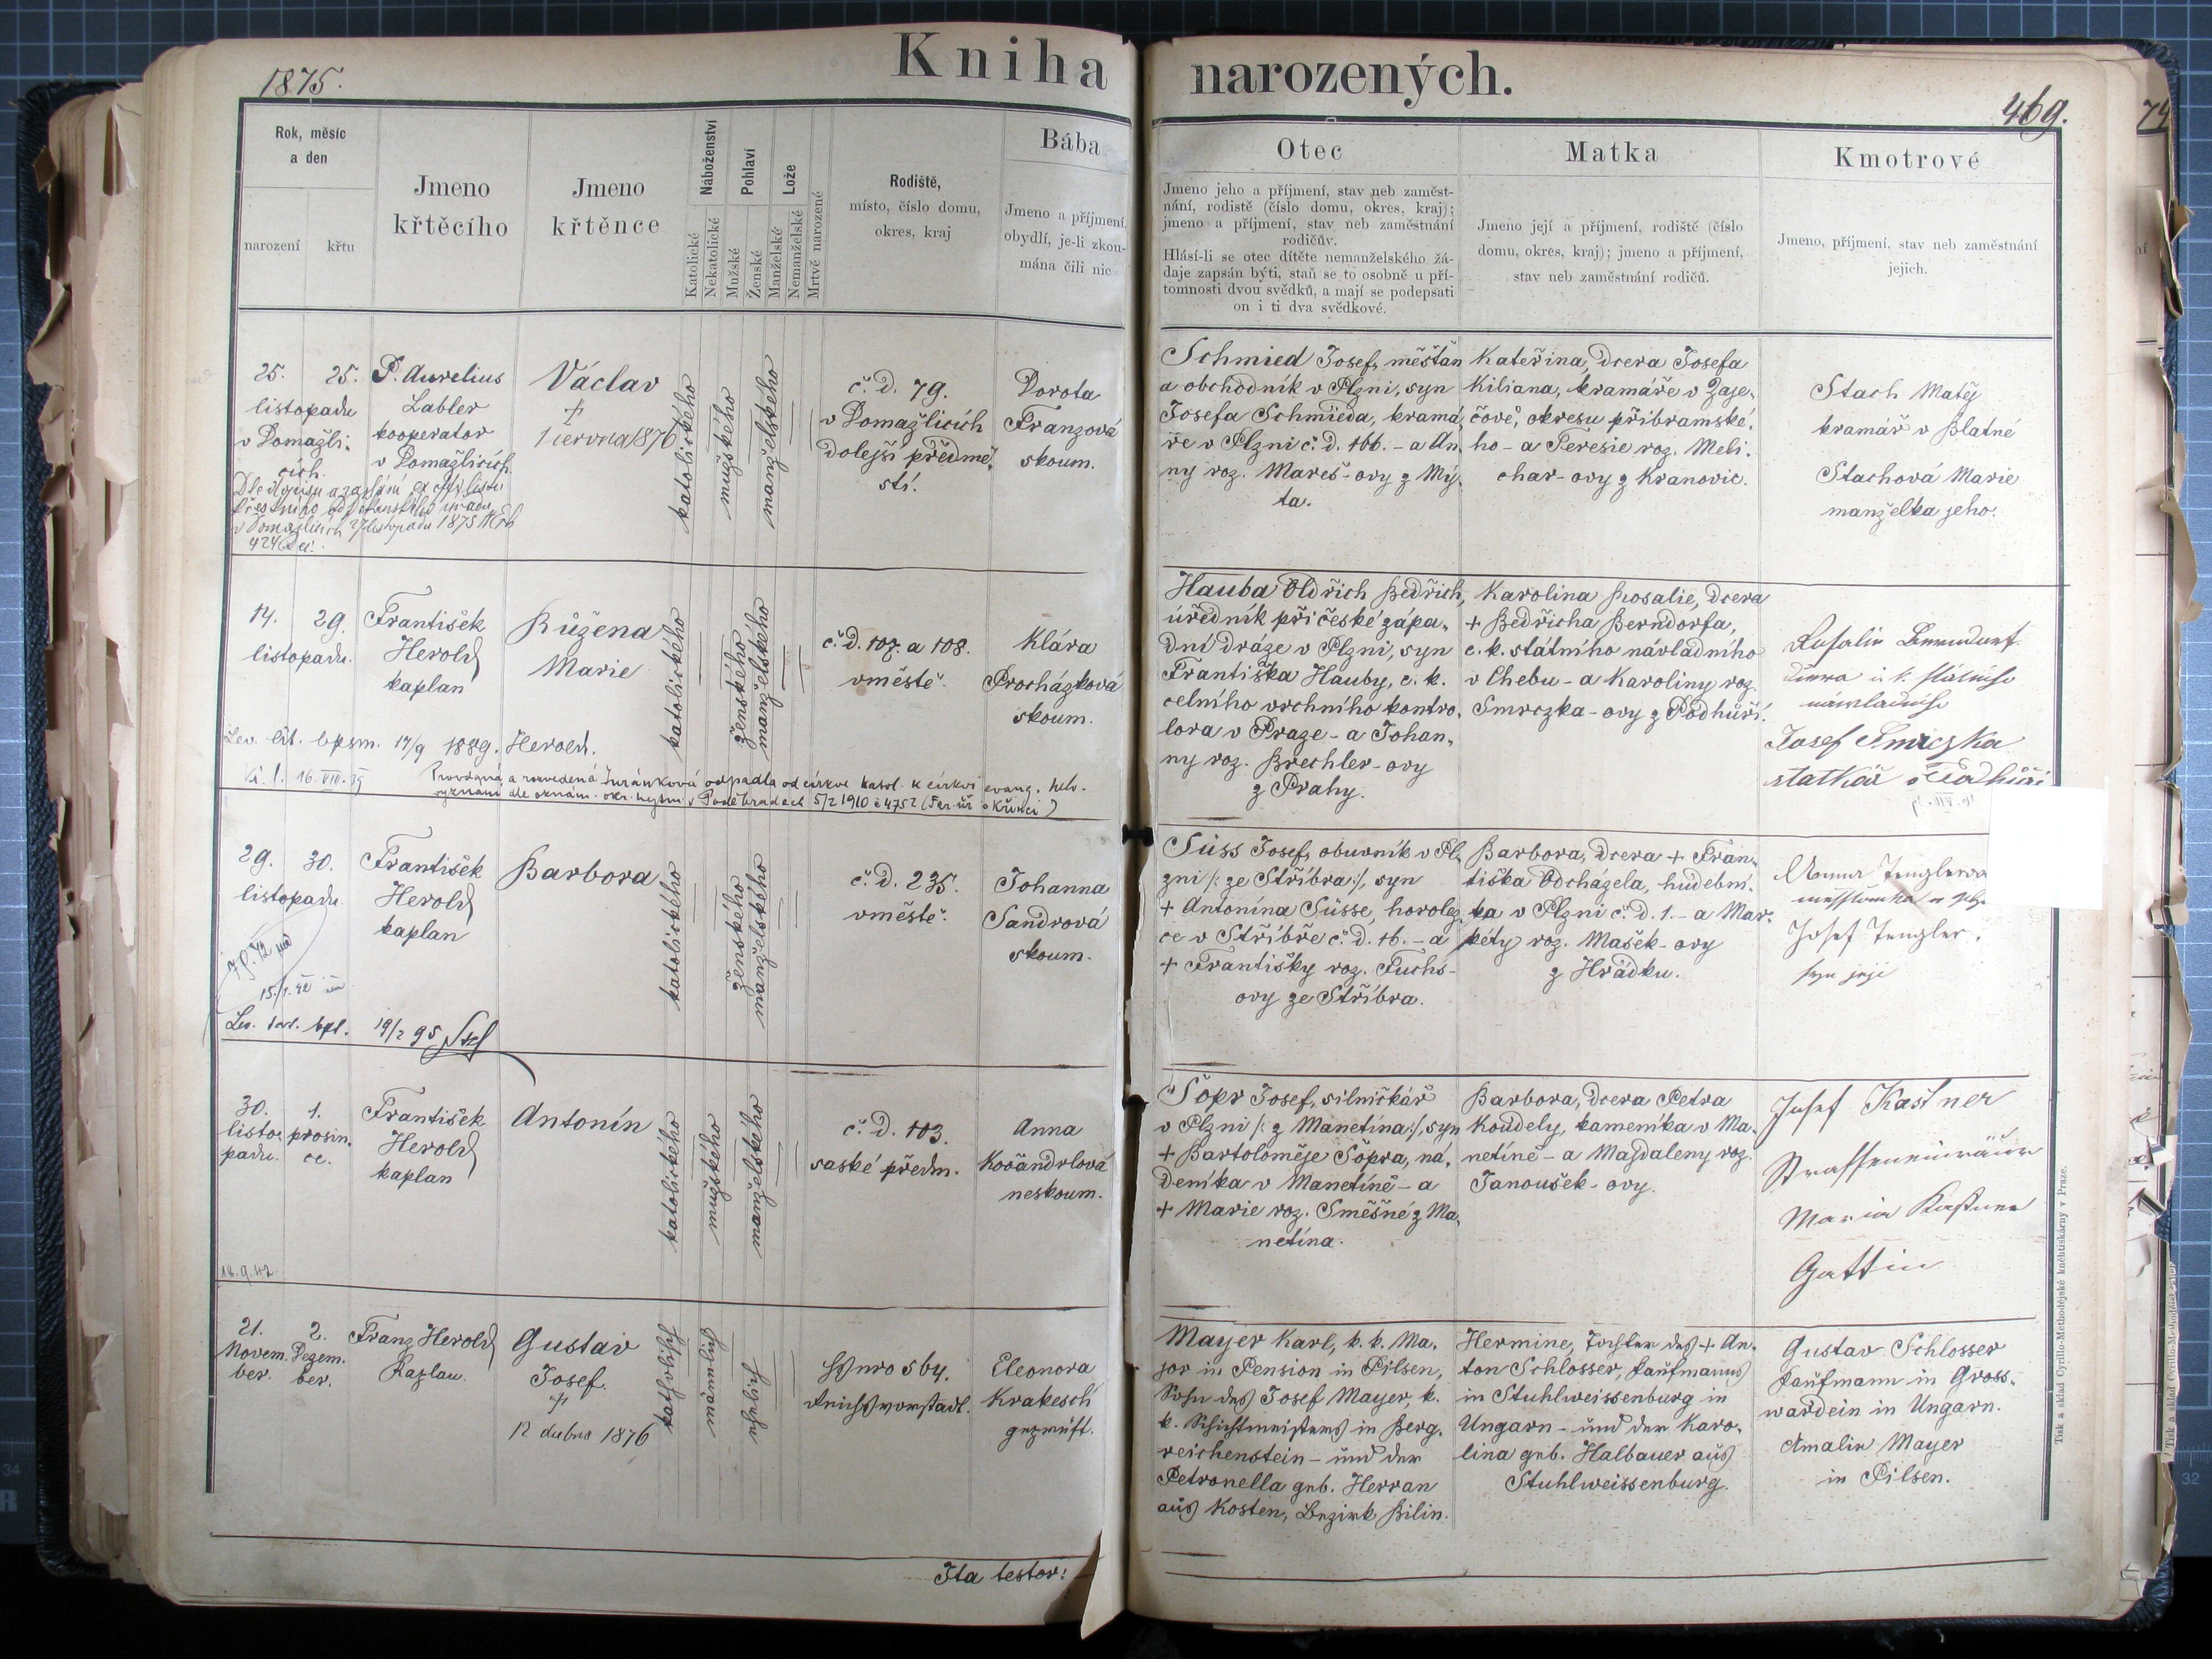 1875.
Kniha narozených.
469.
74
Rok, měsíc
a den
narození
křtu
Jmeno
křtěcího
Jmeno
křtěnce
Náboženství
Katolické
Nekatolické
Pohlaví
Mužské
Ženské
Lože
Manželské
Nemanželské
Mrtvě narozené
Rodiště,
místo, číslo domu,
okres, kraj
Bába
Jmeno a příjmení,
obydlí, je-li zkou-
mána čili nic
Otec
Jmeno jeho a příjmení, stav neb zaměst-
nání, rodiště (číslo domu, okres, kraj);
jmeno a příjmení, stav neb zaměstnání
rodičův.
Hlásí-li se otec dítěte nemanželského žá-
daje zapsán býti, staň se to osobně u pří-
tomnosti dvou svědků, a mají se podepsati
on i ti dva svědkové.
Matka
Jmeno její a příjmení, rodiště (číslo
domu, okres, kraj); jmeno a příjmení,
stav neb zaměstnání rodičů.
Kmotrové
Jmeno, příjmení, stav neb zaměstnání
jejich.
25.
listopadu
v Domažli-
cích.
25.
P. Aurelius
Labler
kooperator
v Domažlicích.
Václav
+
1 června 1876
katolického
mužského
manželského
č. d. 79.
v Domažlicích
dolejší předmě-
stí.
Dorota
Franzová
skoum.
v Domažlicích 27 listopadu 1875
Schmied Josef, měšťan
a obchodník v Plzni, syn
Josefa Schmieda, kramá-
ře v Plzni č. d. 166. - a An-
ny roz. Mareš-ovy z Mý-
ta.
Kateřina, dcera Josefa
Kiliana, kramáře v Zaje-
čově, okresu příbramské-
ho - a Teresie roz. Meli-
char-ovy z Kranovic.
Stach Matěj
kramář v Blatné
Stachová Marie
manželka jeho.
14.
listopadu.
29.
František
Herold
kaplan
Růžena
Marie
katolického
ženského
manželského
č. d. 107. a 108.
v městě.
Klára
Procházková
skoum.
17/9 1889. Herold.
16. VIII. 39
Provdaná a rozvedená Juránková odpadla od církve katol. k církvi evang. helv.
vyznání dle oznám. okr. hejtm. v Poděbradech 5/2 1910 č 4752 (Far. úř. Křinci)
Hauba Oldřich Bedřich,
úředník při české zápa-
dní dráze v Plzni, syn
Františka Hauby, c. k.
celního vrchního kontro-
lora v Praze - a Johan-
ny roz. Brechler-ovy
z Prahy.
Karolina Rosalie, dcera
+ Bedřicha Berndorfa,
c. k. státního návladního
v Chebu - a Karoliny roz.
Smrczka-ovy z Podhůří.
Rosalie Berndorf
dcera c. k. státního
návladního
Josef Smrczka
statkář v Podhůří
29.
listopadu
30.
František
Herold
kaplan
Barbora
katolického
ženského
manželského
č. d. 235.
v městě.
Johanna
Sandrová
skoum.
19/2 95
Süss Josef, obuvník v Pl-
zni /: ze Stříbra :/, syn
+ Antonína Süsse, horolez-
ce v Stříbře č. d. 16. - a
+ Františky roz. Fuchs-
ovy ze Stříbra.
Barbora, dcera + Fran-
tiška Odcházela, hudební-
ka v Plzni č. d. 1. - a Mar-
kéty roz. Mašek-ovy
z Hrádku.
Anna Tenglerova
Josef Tengler,
syn její
30.
listo-
padu.
1.
prosin-
ce.
František
Herold
kaplan
Antonín
katolického
mužského
manželského
č. d. 103.
saské předm.
Anna
Kořandrlová
neskoum.
18.9.42
Šopr Josef, silničkář
v Plzni /: z Manetína :/, syn
+ Bartoloměje Šopra, ná-
deníka v Manetíně - a
+ Marie roz. Směšné z Ma-
netína.
Barbora, dcera Petra
Koudely, kameníka v Ma-
netíně - a Majdaleny roz.
Janoušek-ovy.
Josef Kastner
Strasseneinräumer
Maria Kastner
Gattin
21.
Novem-
ber.
2.
Dezem-
ber.
Franz Herold
Kaplan.
Gustav
Josef.
+
12 dubna 1876
katholisch
männlich
ehelich
Nro 564.
Reichsvorstadt.
Eleonora
Krakesch
geprüft.
Mayer Karl, k. k. Ma-
jor in Pension in Pilsen,
Sohn des Josef Mayer, k.
k. Schichtmeisters in Berg-
reichenstein - und der
Petronella geb. Herran
aus Kosten, Bezirk Bilin.
Hermine, Tochter des + An-
ton Schlosser, Kaufmanns
in Stuhlweissenburg in
Ungarn - und der Karo-
lina geb. Halbauer aus
Stuhlweissenburg.
Gustav Schlosser
Kaufmann in Gross-
wardein in Ungarn.
Amalie Mayer
in Pilsen.
Ita testor:
Tisk a sklad Cyrillo-Methodějské knihtiskárny v Praze.
34
32